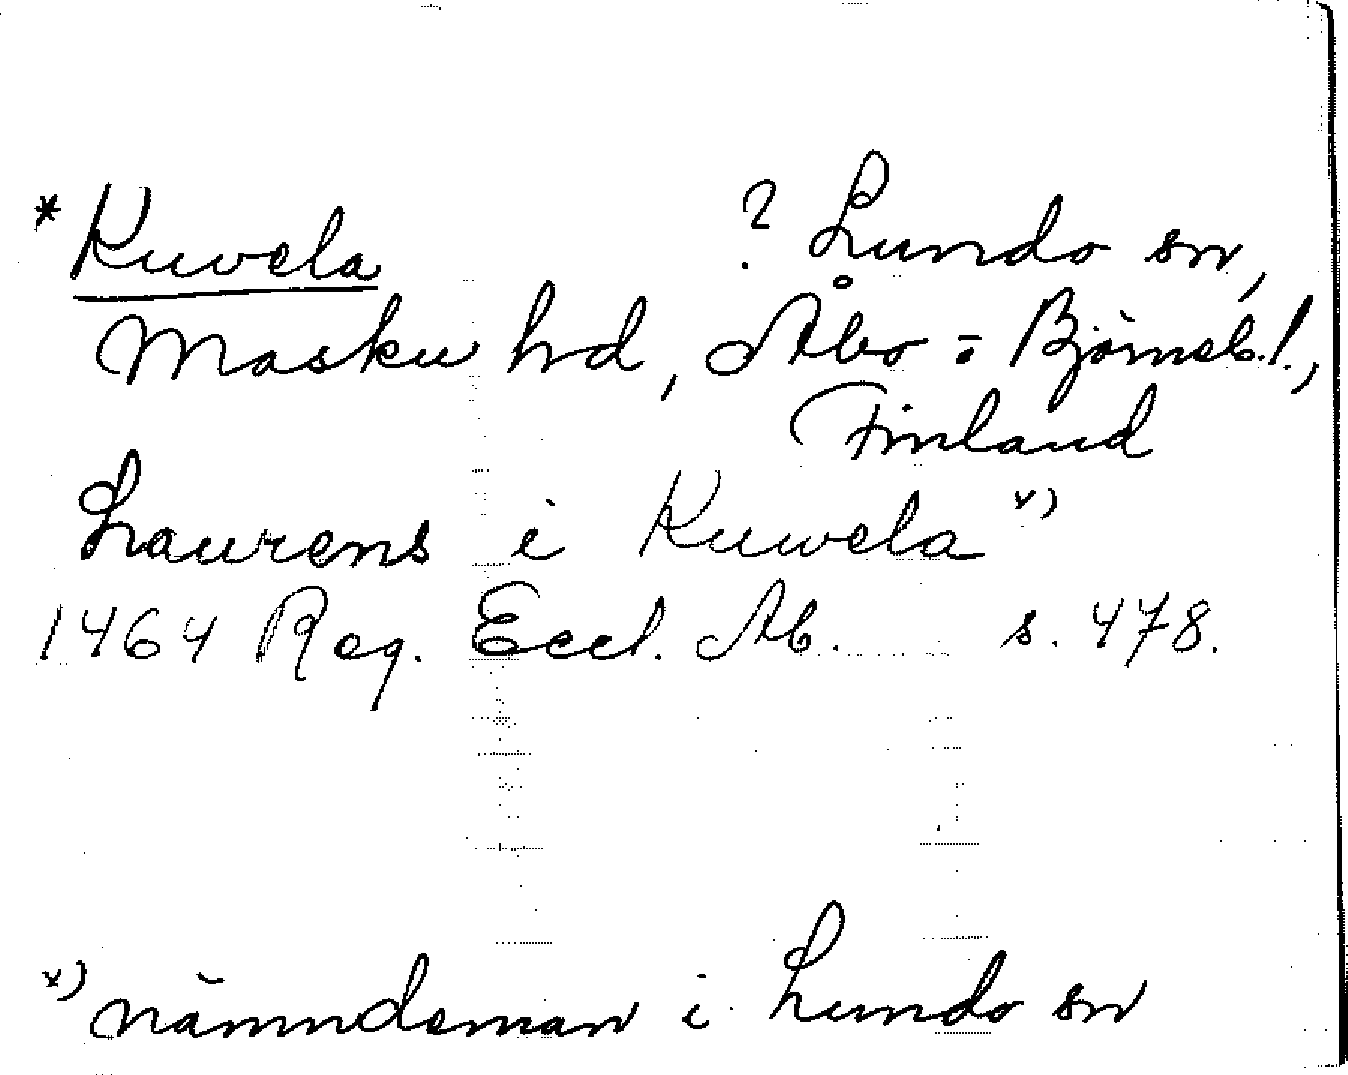 * Kuvela ? Lundo sn,
Masku hd, Åbo = Björneb. l.,
Finland
Laurens i Kuwela x)
1464 Reg. Eccl. Ab. s. 478.
x) nämndeman i Lundo sn